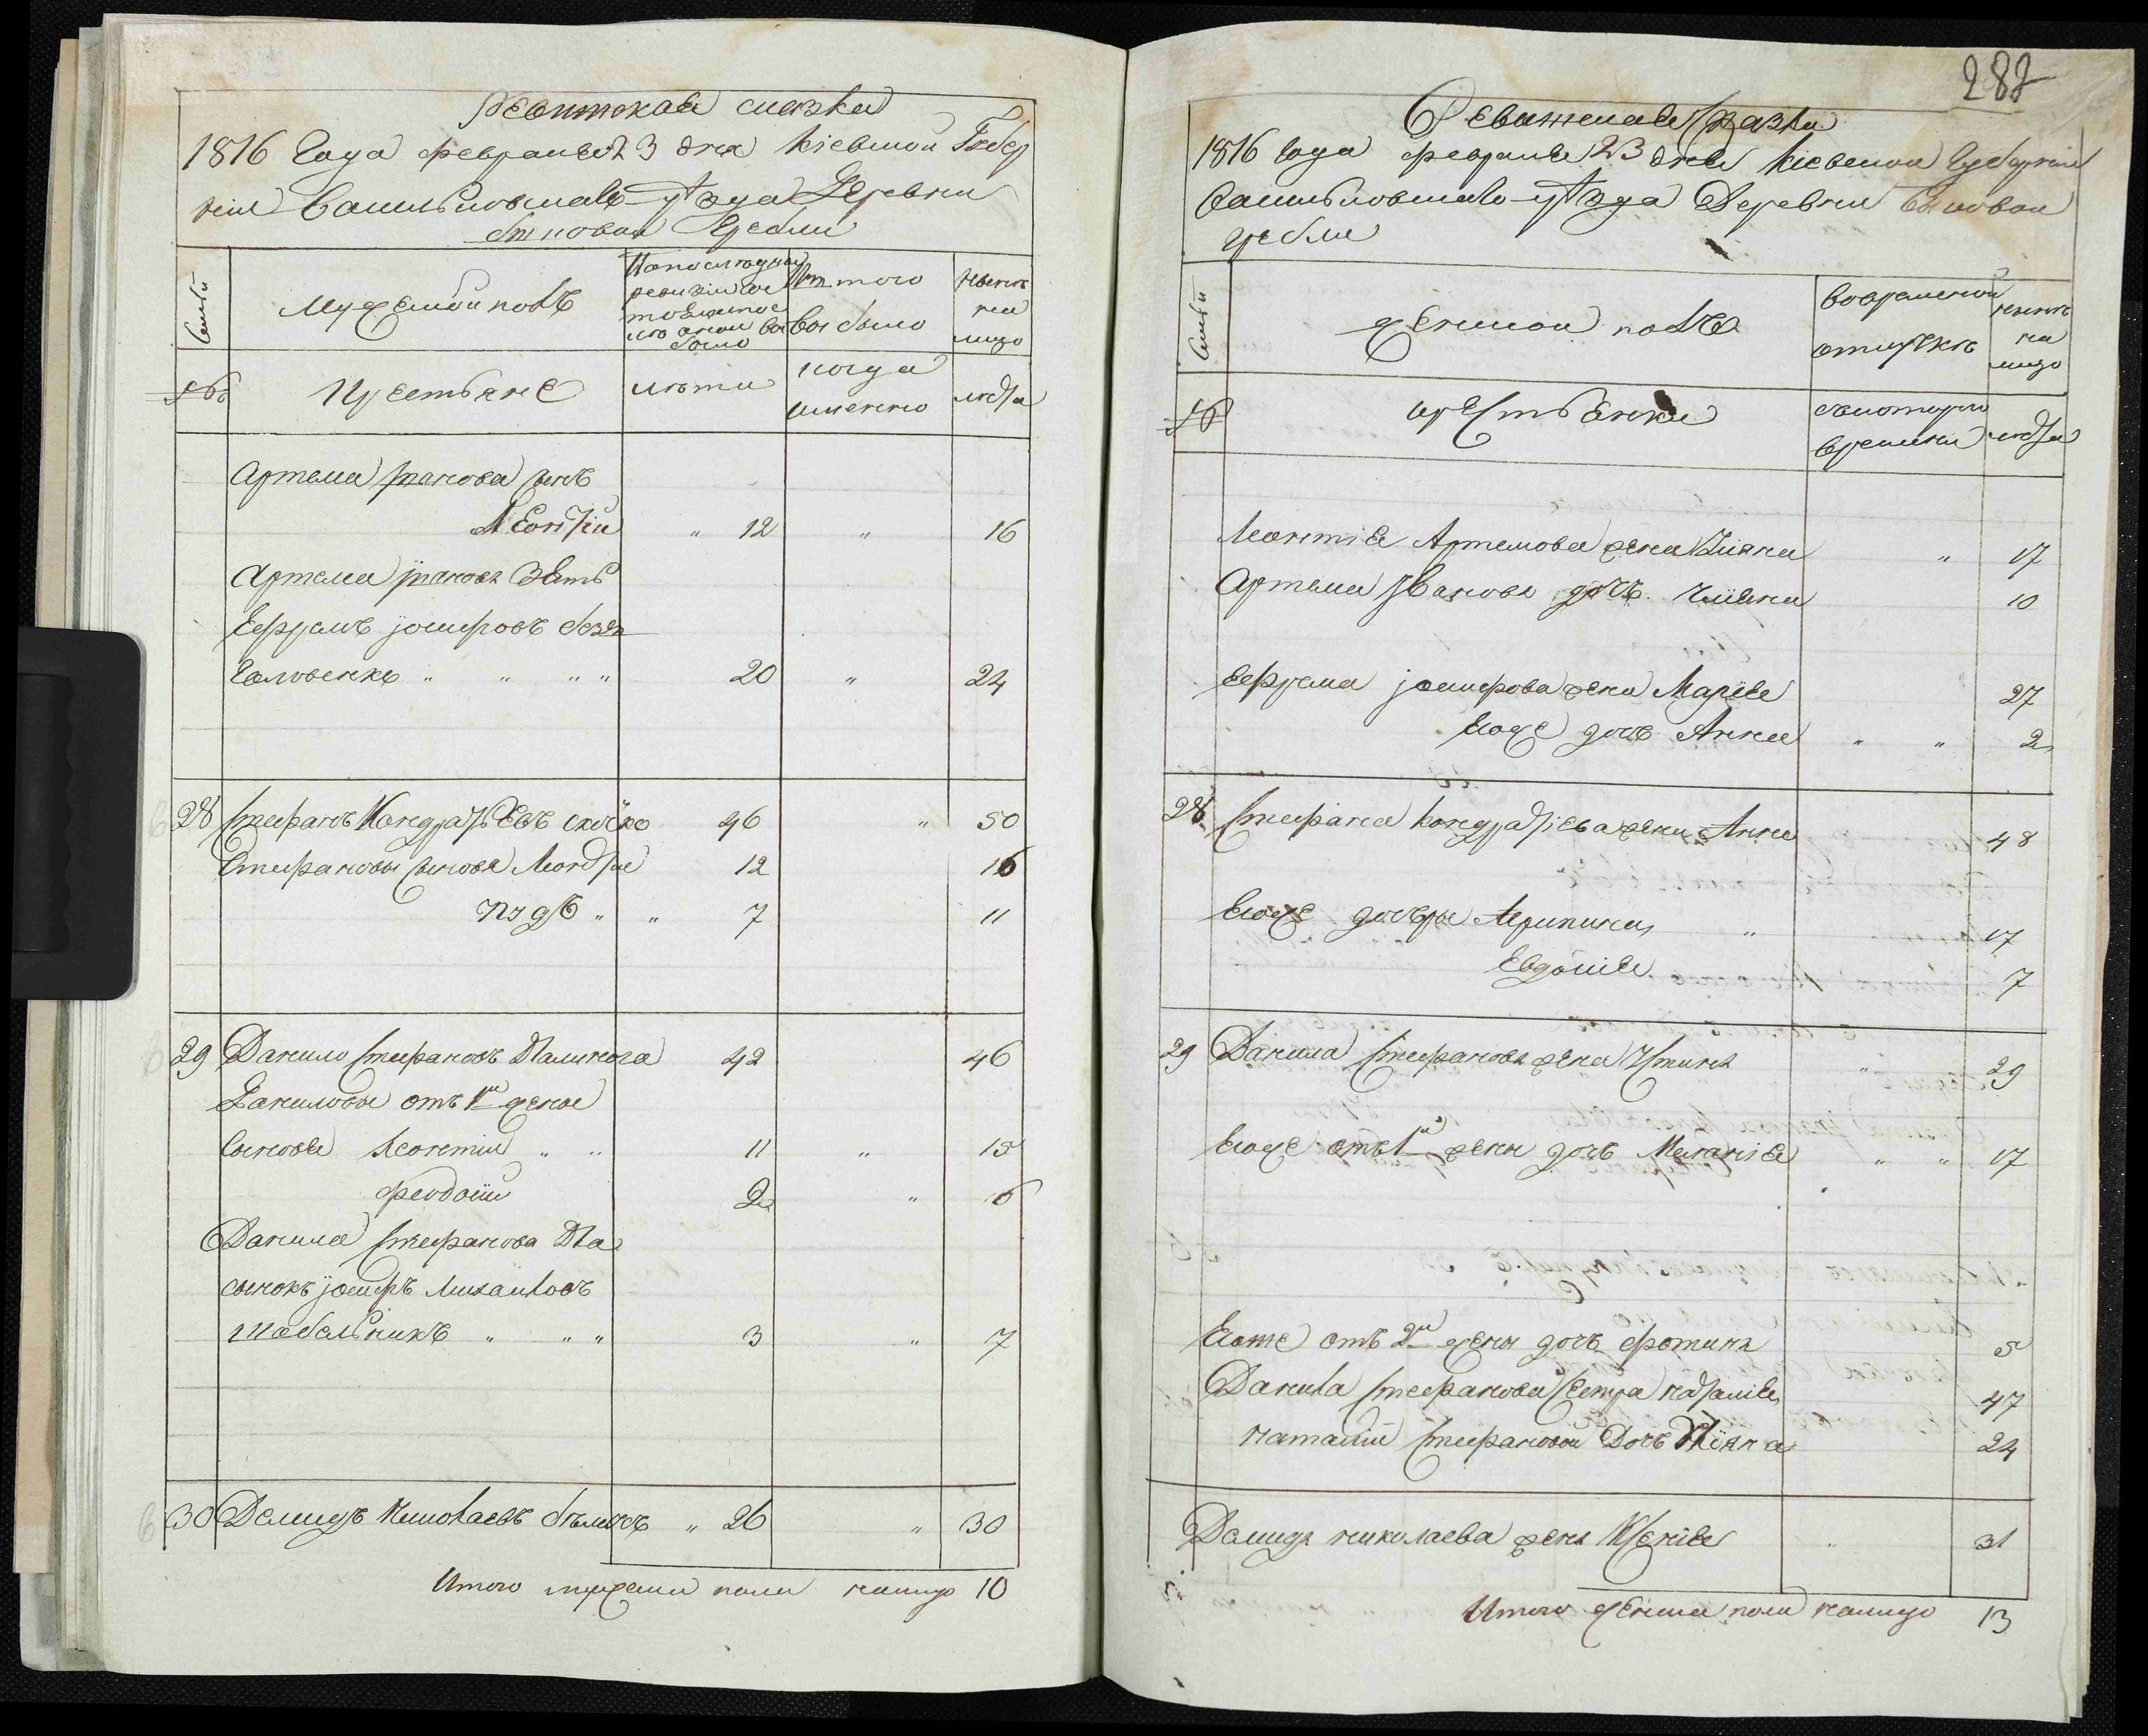 Ревижская сказка
1816 Года февраля 23 дня Кіевской Губер
ніи Васильковскаго уѣзда Деревни
Быковой Гребли
Семьи
Мужеской полъ
По последней
ревизіи со
стояло и после
оной
было
Изъ того
выбыло
Нынѣ
на
лицо
№
Крестьяне
лѣта
когда
именно
лѣта
Артема Иванова сынъ
Леонтій " 12 " 16
Артема Иванова зять
Ефремъ Іосифовъ
Головенко " " " " 20 " 24
28 Стефанъ Кондратьевъ 46 " 50
Стефановы сыновья Леонтій 12 16
" " 7 11
29 Данило Стефановъ 42 46
Даниловы отъ 1й жены
сыновья Леонтій " " 11 " 15
Феодосій 2 " 6
Данила Стефанова
сынокъ Іосифъ Михайловъ
" " " 3 " 7
30 Демидъ Николаевъ " 26 " 30
Итого мужеска пола налицо 10
287
Ревижская сказка
1816 года февраля 23 дня Кіевской Губерніи
Васильковскаго уѣзда Деревни Быковой
гребли
Семьи
Женской полъ
Во временной
отлучкѣ
нынѣ
на
лицо
№
Крестьянки
съ котораго
времени
лѣта
Леонтія Артемова жена Уліяна " 17
Артема Иванова дочь Уліяна 10
Ефрема Іосифова жена Марія 27
Его же дочь Анна " " 2
28 Стефана Кондратіева жена Анна 48
Его же дочери Агрипина " 17
Евдокія 7
29 Данила Стефанова жена Устина " 29
Его же отъ 1й жены дочь Меланія " " 17
Его же отъ 2й жены дочь Фотина 5
Данила Стефанова сестра Наталія 47
Наталіи Стефановой дочь 24
Демида Николаева жена Ксенія " 31
Итого женска пола налицо 13